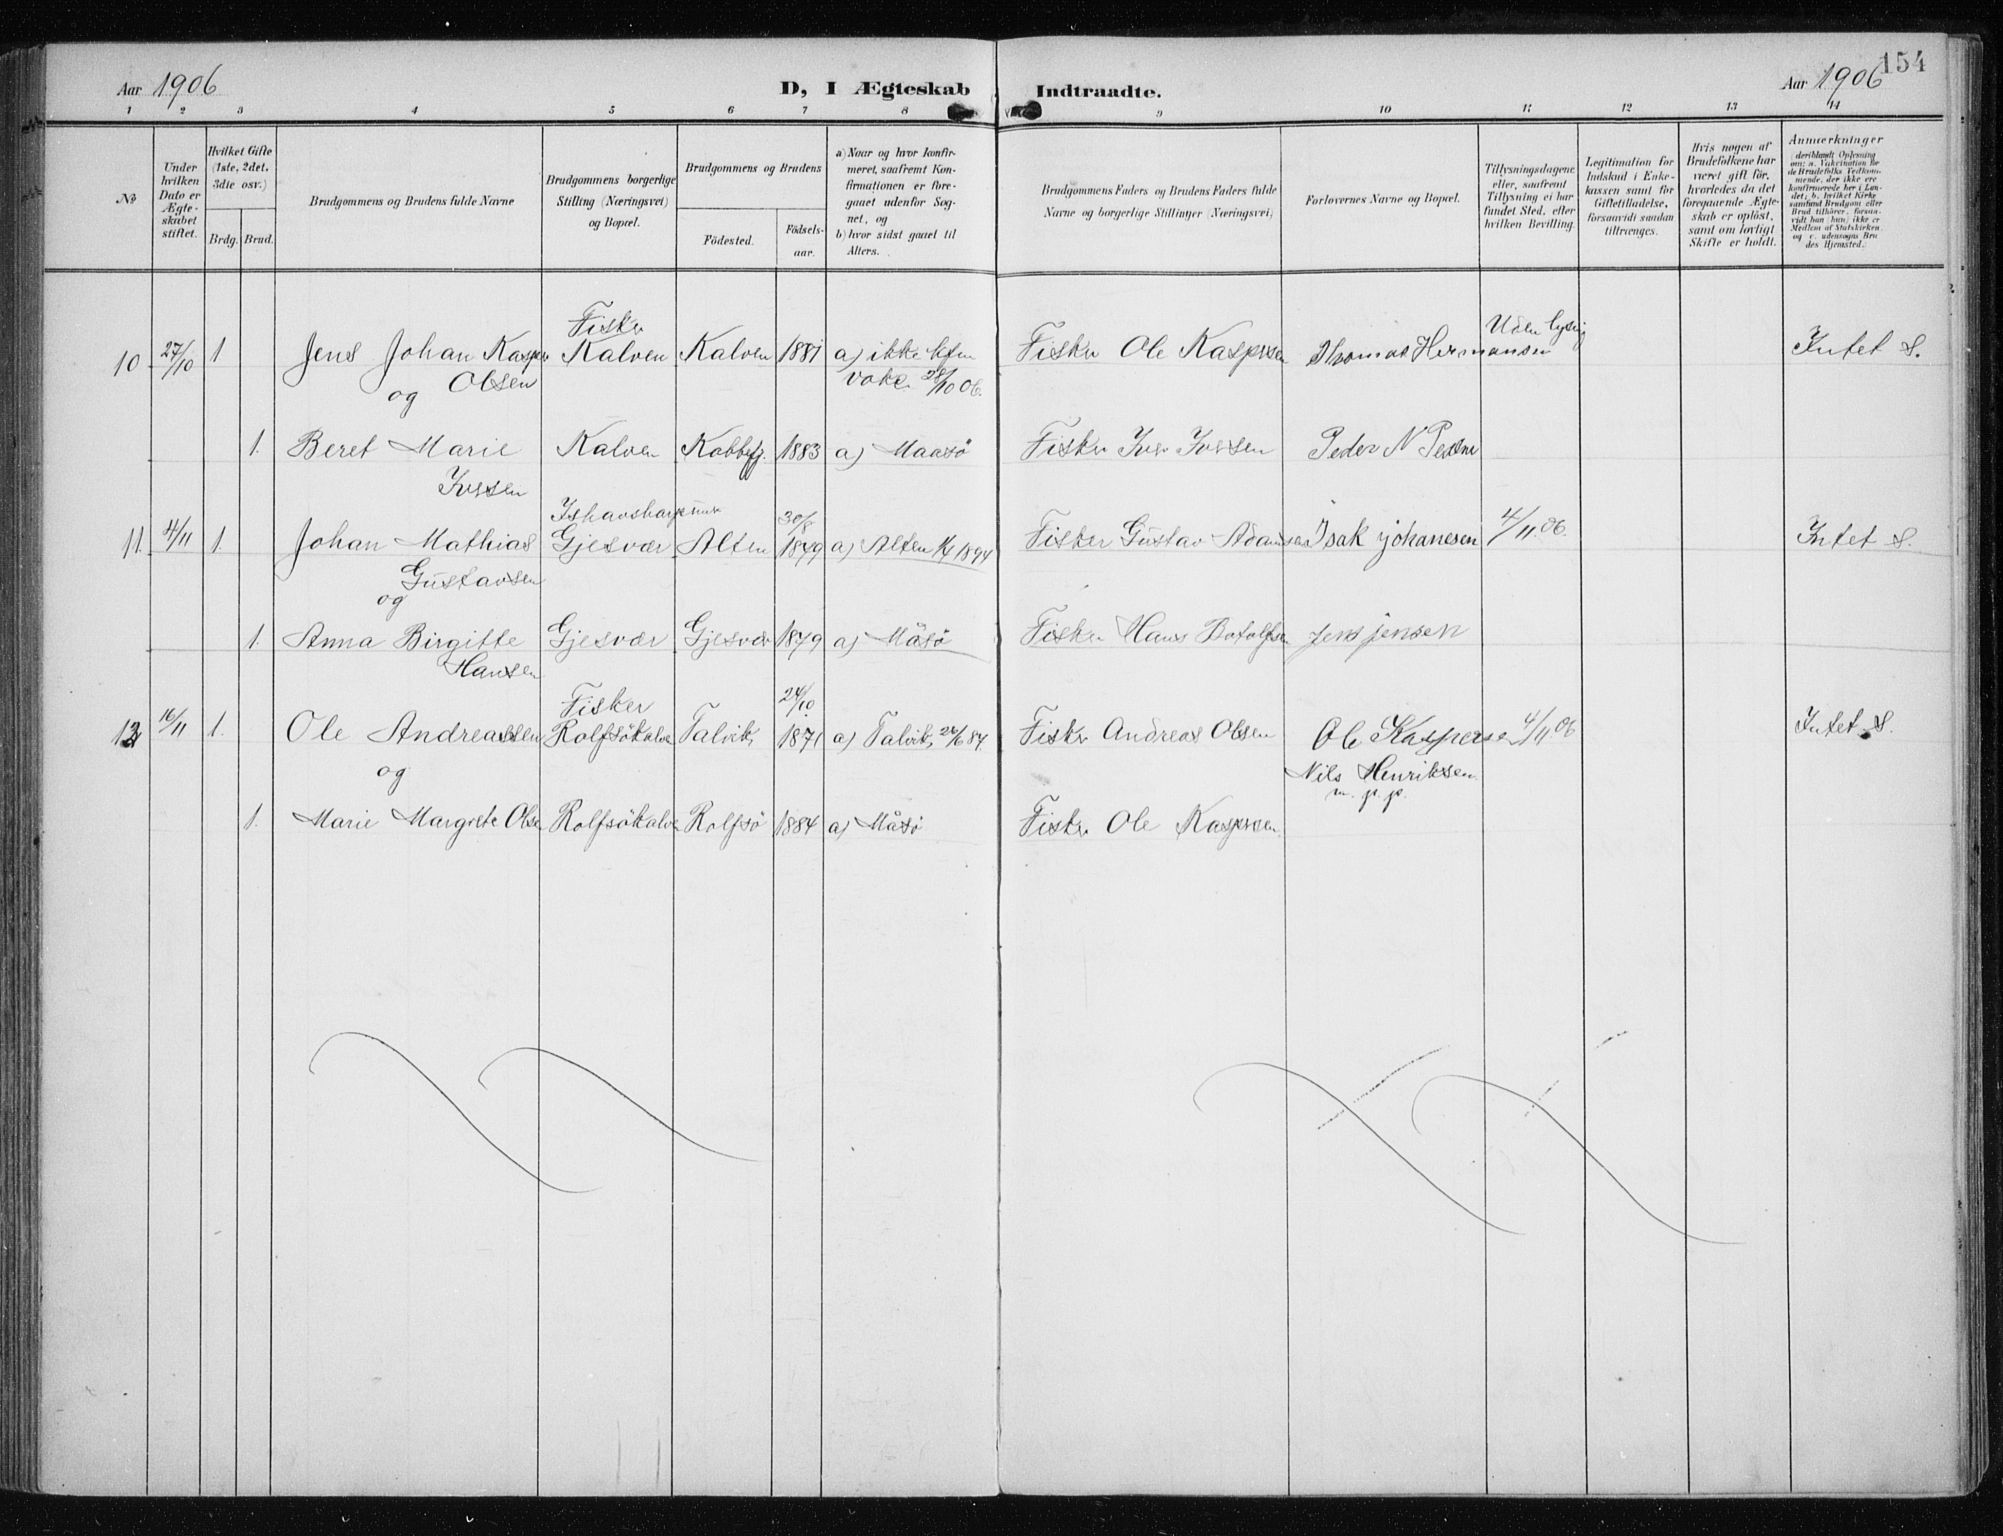 154
Aar 1906 D, I Ægteskab Indtraadte. Aar 1906
1 2 3 4 5 6 7 8 9 10 11 12 13 14
№
Under hvilken Dato er Ægteskabet stiftet.
Hvilket Gifte (1ste, 2det, 3die osv.)
Brdg. Brud.
Brudgommens og Brudens fulde Navne
Brudgommens borgerlige Stilling (Næringsvei) og Bopæl.
Brudgommens og Brudens
Födested. Födsels-aar.
a) Naar og hvor konfirmeret, saafremt Konfirmationen er foregaaet udenfor Sognet, og
b) hvor sidst gaaet til Alters.
Brudgommens Faders og Brudens Faders fulde Navne og borgerlige Stillinger (Næringsvei)
Forlovernes Navne og Bopæl.
Tillysningsdagene, eller, saafremt Tillysning ei har fundet Sted, efter hvilken Bevilling.
Legitimation for Indskud i Enkekassen samt for Giftetilladelse, forsaavidt saadan tiltrænges.
Hvis nogen af Brudefolkene har været gift för, hvorledes da det foregaaende Ægteskab er oplöst, samt om lovligt Skifte er holdt.
Anmærkninger
(deriblandt Oplysning om: a. Vakcination for de Brudefolks Vedkommende, der ikke ere konfirmerede her i Landet; b. hvilket Kirkesamfund Brudgom eller Brud tilhörer, forsaavidt han (hun) ikke er Medlem af Statskirken, og c. udensogns Brudes Hjemsted.)
Fisker Uden lysnig
10 27/10 1 Jens Johan Kasper Kalven Kalven 1881 a) ikke Fisker Ole Kaspersen Thomas Hermansen Intet S.
Olsen 28/10 06.
og
1. Beret Marie Kalven Kobbefj. 1883 a) Maasö Fisker Iver Iversen Peder N Peders
Iversen
30/8
11. 4/11 1. Johan Mathias Gjesvær Alten 1879 a) Alten 1894 Fisker Gustav Adamsen Isak johanesen 4/11.06. Intet S.
Gustavsen
og
1. Anna Birgitte Gjesvær Gjesvær 1879 a) Måsö Fisker Hans Botolfsen jens jensen
Hansen
Fisker 24/10.
12 16/11 1. Ole Andreassen Rolfsökalven Talvik 1871 a) Talvik 87 Fisker Andreas Olsen Ole Kaspersen 4/11.06 Intet S.
og Nils Henriksen
m. p. p.
1. Marie Margrete Olsen Rolfsökalven Rolfsö 1884 a) Måsö Fisker Ole Kaspersen.